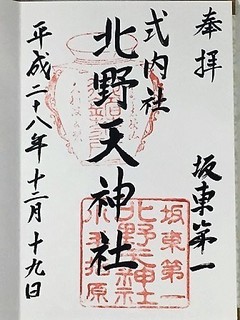 奉拝
坂東第一
式内社
北野天神社
平成二十八年十二月十九日
坂東第一
北野天神社